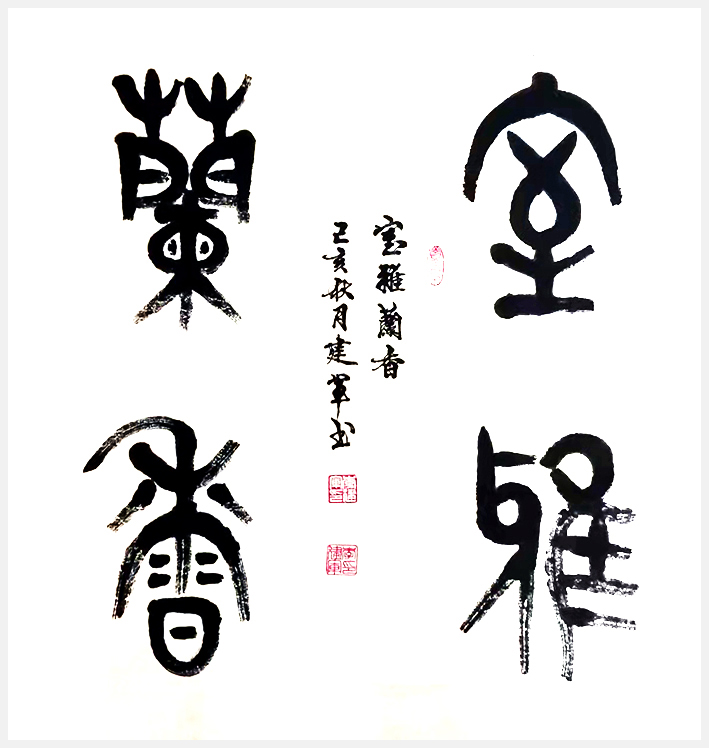 室雅
蘭香
室雅蘭香
己亥秋月建軍书